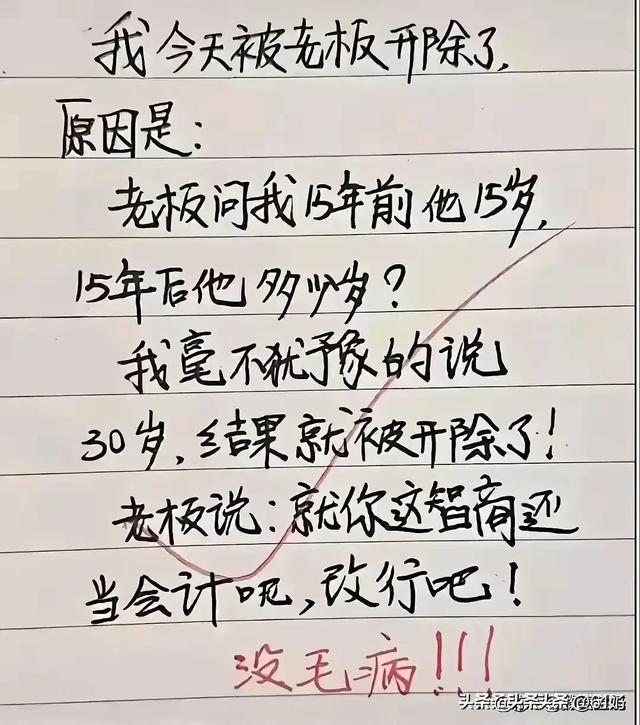 我今天被老板开除了,
原因是:
老板问我15年前他15岁,
15年后他多少岁?
我毫不犹豫的说
30岁,结果就被开除了!
老板说:就你这智商还
当会计呢,改行吧!
没毛病!!!